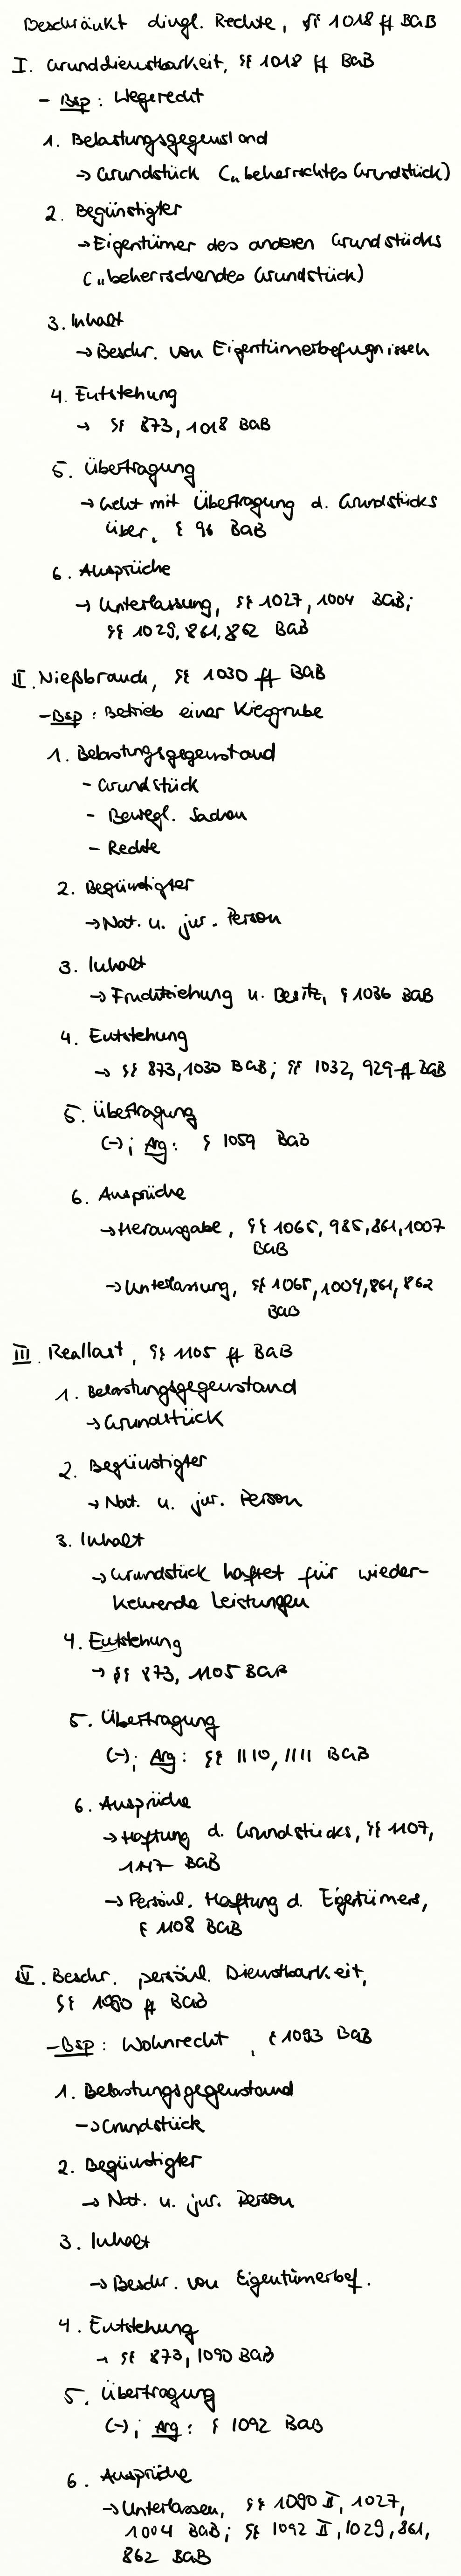 Beschränkt dingl. Rechte, §§ 1018 ff BGB
I. Grunddienstbarkeit, §§ 1018 ff BGB
- Bsp: Wegerecht
1. Belastungsgegenstand
→ Grundstück („beherrschtes Grundstück)
2. Begünstigter
→ Eigentümer des anderen Grundstücks
(„beherrschendes Grundstück)
3. Inhalt
→ Beschr. von Eigentümerbefugnissen
4. Entstehung
→ §§ 873, 1018 BGB
5. Übertragung
→ Geht mit Übertragung d. Grundstücks
über, § 96 BGB
6. Ansprüche
→ Unterlassung, §§ 1027, 1004 BGB;
§§ 1029, 861, 862 BGB
II. Nießbrauch, §§ 1030 ff BGB
- Bsp: Betrieb einer Kiesgrube
1. Belastungsgegenstand
- Grundstück
- Bewegl. Sachen
- Rechte
2. Begünstigter
→ Nat. u. jur. Person
3. Inhalt
→ Fruchtziehung u. Besitz, § 1036 BGB
4. Entstehung
→ §§ 873, 1030 BGB; §§ 1032, 929 ff BGB
5. Übertragung
(-); Arg: § 1059 BGB
6. Ansprüche
→ Herausgabe, §§ 1065, 985, 861, 1007
BGB
→ Unterlassung, §§ 1065, 1004, 861, 862
BGB
III. Reallast, §§ 1105 ff BGB
1. Belastungsgegenstand
→ Grundstück
2. Begünstigter
→ Nat. u. jur. Person
3. Inhalt
→ Grundstück haftet für wieder-
kehrende Leistungen
4. Entstehung
→ §§ 873, 1105 BGB
5. Übertragung
(-); Arg: §§ 1110, 1111 BGB
6. Ansprüche
→ Haftung d. Grundstücks, §§ 1107,
1147 BGB
→ Persönl. Haftung d. Eigentümers,
§ 1108 BGB
IV. Beschr. persönl. Dienstbarkeit,
§§ 1090 ff BGB
- Bsp: Wohnrecht, § 1093 BGB
1. Belastungsgegenstand
→ Grundstück
2. Begünstigter
→ Nat. u. jur. Person
3. Inhalt
→ Beschr. von Eigentümerbef.
4. Entstehung
→ §§ 873, 1090 BGB
5. Übertragung
(-); Arg: § 1092 BGB
6. Ansprüche
→ Unterlassen, §§ 1090 II, 1027,
1004 BGB; §§ 1092 II, 1029, 861,
862 BGB